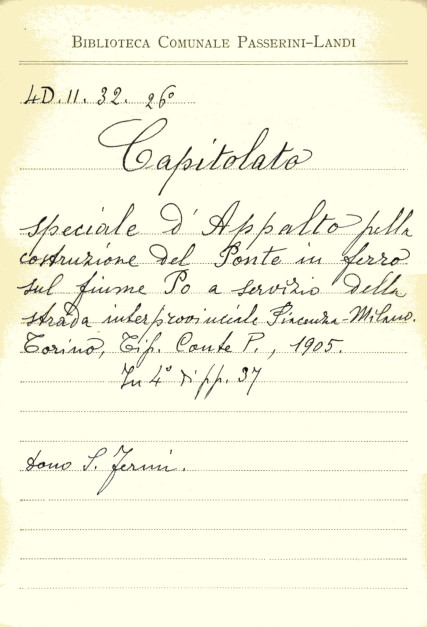 BIBLIOTECA COMUNALE PASSERINI-LANDI
4D.11.32. 26°
Capitolato
speciale d'Appalto pella
costruzione del Ponte in ferro
sul fiume Po a servizio della
strada interprovinciale Piacenza-Milano.
Torino, Tip. Conte P., 1905.
In 4° di pp. 37
dono S. Fermi.